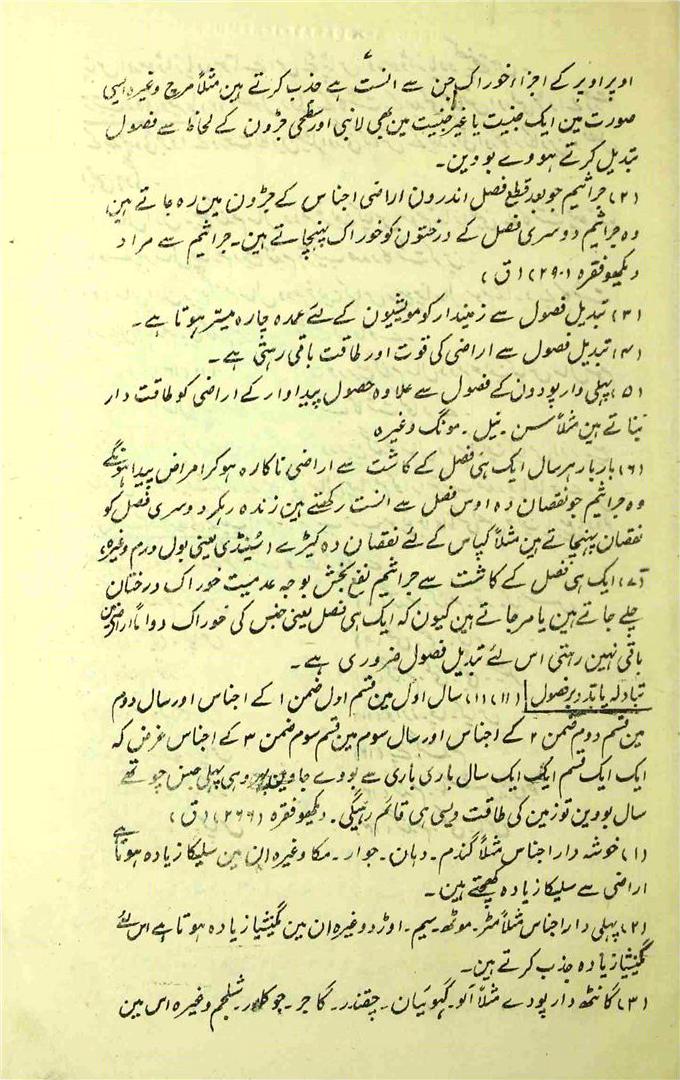 ۷
اوپر اوپر کے اجزا اخوراک جن سے انست ہے جذب کرتے ہین مثلاً مرچ وغیرہ ایسی
صورت مین ایک جنیت یا غیر جنیت مین بھی لانبی اور سطحی جڑون کے لحاظ سے فصول
تبدیل کرتے ہووے بووین۔
(۲) جراثیم جو بعد قطع فصل اندرون اراضی اجناس کے جڑون مین رہ جاتے ہین
وہ جراثیم دوسری فصل کے درختون کو خوراک پہنچاتے ہین۔ جراثیم سے مراد
دیکھو فقرہ (۲۹۰) (ق)
(۳) تبدیل فصول سے زمیندار کو مویشیون کے لئے عمدہ چارہ میتر ہوتا ہے۔
(۴) تبدیل فصول سے اراضی کی قوت اور طاقت باقی رہتی ہے۔
(۵) پہلی دار پودون کے فصول سے علاوہ حصول پیداوار کے اراضی کو طاقت دار
بناتے ہین مثلاً سن۔ نیل۔ مونگ وغیرہ
(۶) بار بار ہر سال ایک ہی فصل کے کاشت سے اراضی ناکارہ ہوکر امراض پیدا ہونگے
وہ جراثیم جو نقصان دہ اوس فصل سے انست رکھتے ہین زندہ رہکر دوسری فصل کو
نقصان پہنچاتے ہین مثلاً کپاس کے لئے نقصان دہ کیڑے (سُنڈی یعنی بول ورم وغیرہ)
(۷) ایک ہی فصل کے کاشت سے جراثیم نفع بخش بوجہ عدمیت خوراک درختان
چلے جاتے ہین یا مرجاتے ہین کیون کہ ایک ہی فصل یعنی جنس کی خوراک دواماً اراضی مین
باقی نہین رہتی اس لئے تبدیل فصول ضروری ہے۔
تبادلہ یا تردد بر فصول (۱۱) (۱) سال اول مین قسم اول ضمن ۱ کے اجناس اور سال دوم
مین قسم دوم ضمن ۲ کے اجناس اور سال سوم مین قسم سوم ضمن ۳ کے اجناس غرض کہ
ایک ایک قسم ایک ایک سال باری باری سے بووے جاوین وہی پہلی جنس چوتھے
سال بووین تو زمین کی طاقت ویسی ہی قائم رہیگی۔ دیکھو فقرہ (۲۶۶) (ق)
(۱) خوشہ دار اجناس مثلاً گندم۔ دہان۔ جوار۔ مکا وغیرہ اِن مین سلیکا زیادہ ہوتا ہے
اراضی سے سلیکا زیادہ کھیچتے ہین۔
(۲) پہلی دار اجناس مثلاً مٹر۔ موٹھ۔ سیم۔ اوڑد وغیرہ اِن مین گنیشیا زیادہ ہوتا ہے اس لئے
گنیشیا زیادہ جذب کرتے ہین۔
(۳) گانٹھ دار پودے مثلاً آلو۔ گہوئیان۔ چقندر۔ گاجر۔ شلجم وغیرہ اس مین